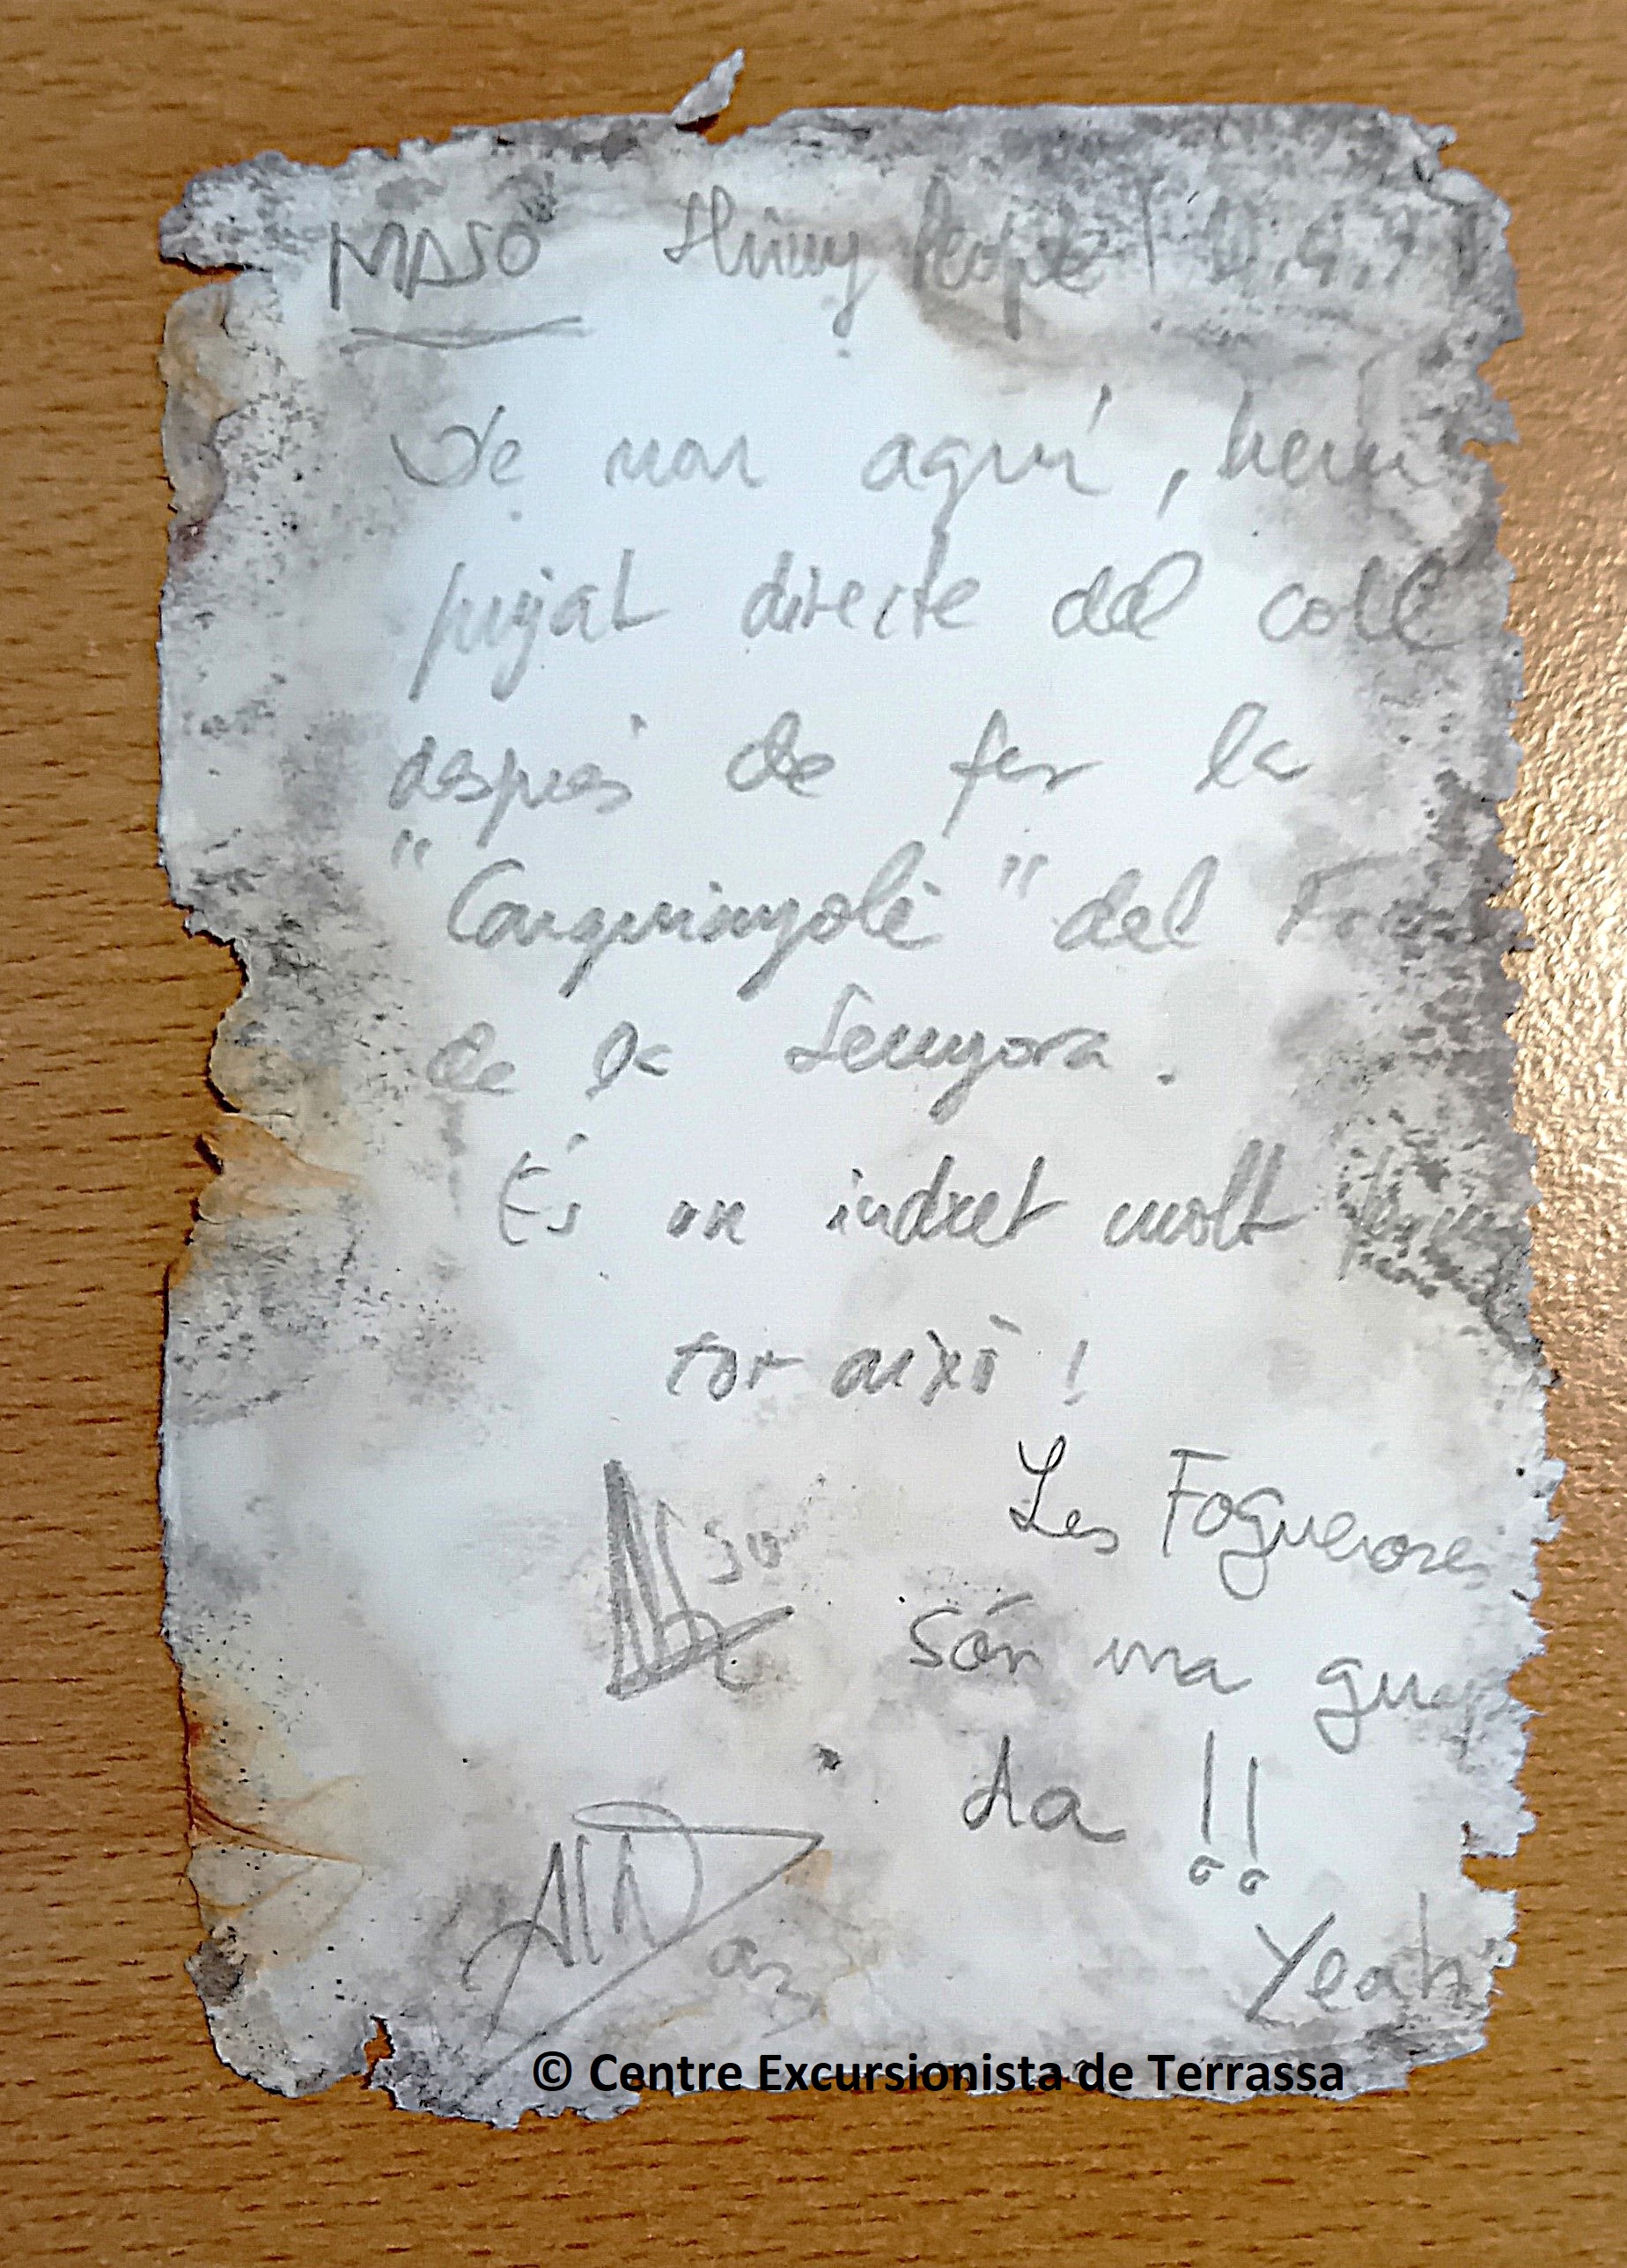 MASO Shiny People
De nou aquí, hem
pujat directe del coll
després de fer la
"Carquinyoli" del
de la Senyora.
És un indret molt
tor això!
Les Fogueroses
són una guap
da!!
Yeah
© Centre Excursionista de Terrassa